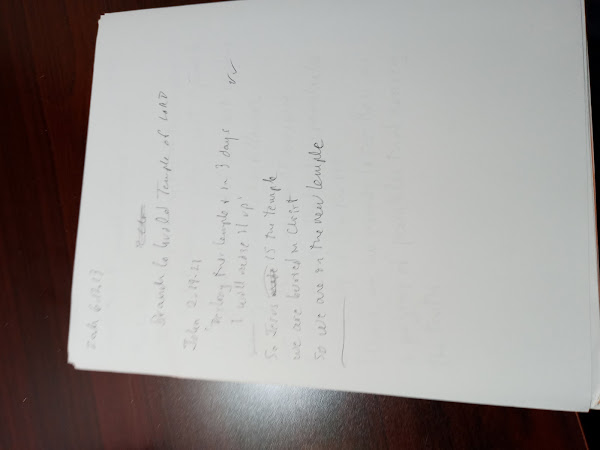 Zech 6.12,13
Branch to build Temple of LORD
John 2.19-21
'Destroy this temple & in 3 days
I will raise it up'
So Jesus is the temple
we are buried in Christ
So we are in the new temple